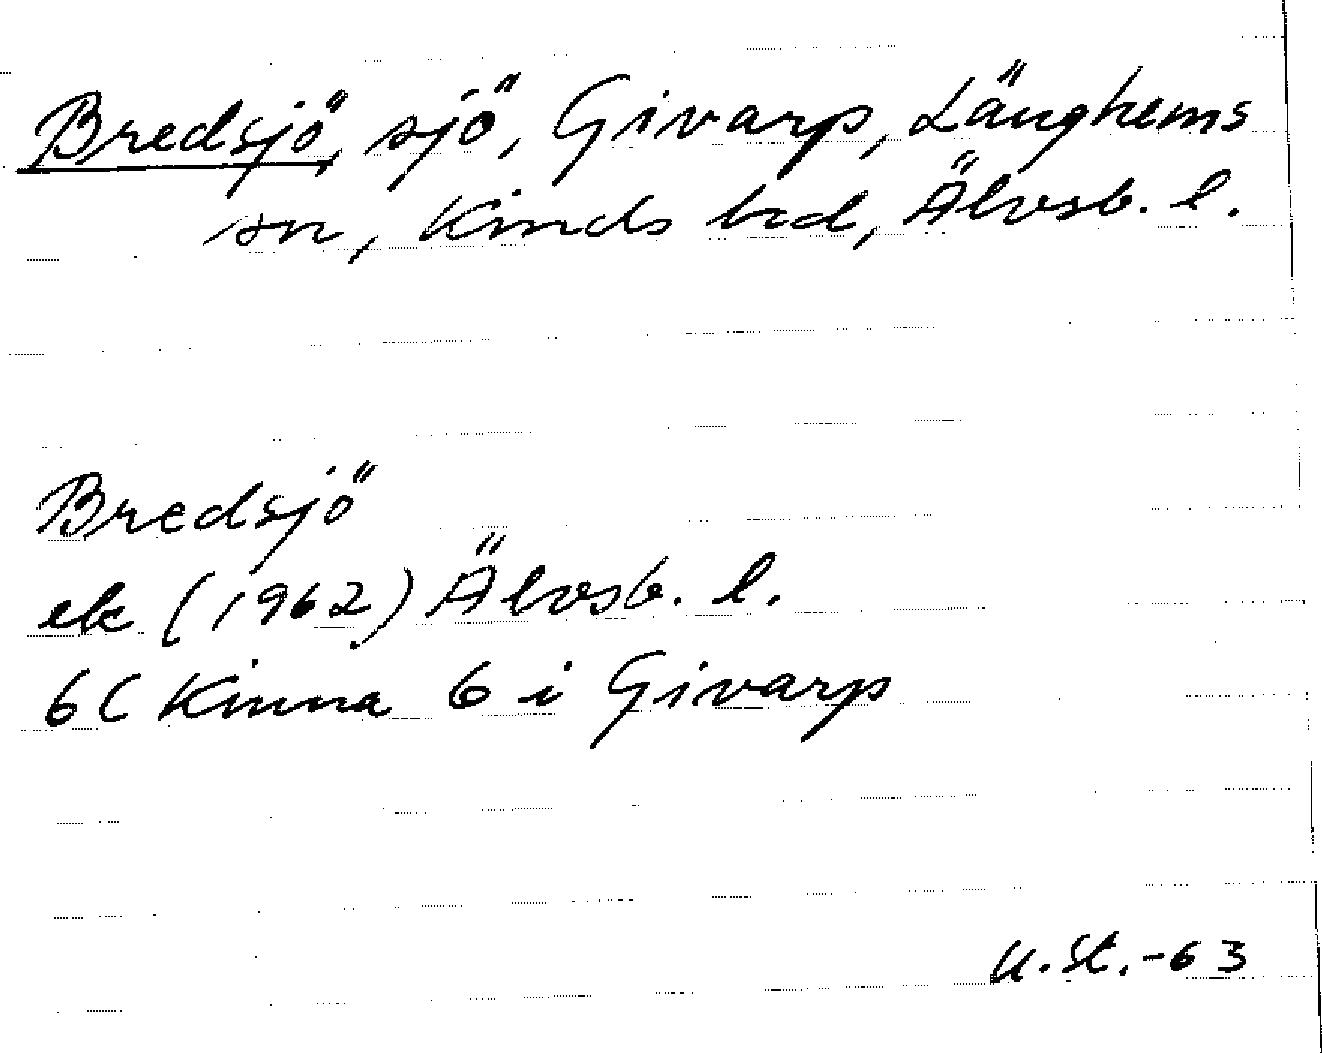 Bredsjö, sjö, Givarp, Länghems
sn, Kinds hd, Älvsb. l.
Bredsjö
ek (1962) Älvsb. l.
6C Kinna 6 i Givarp
U.St.-63